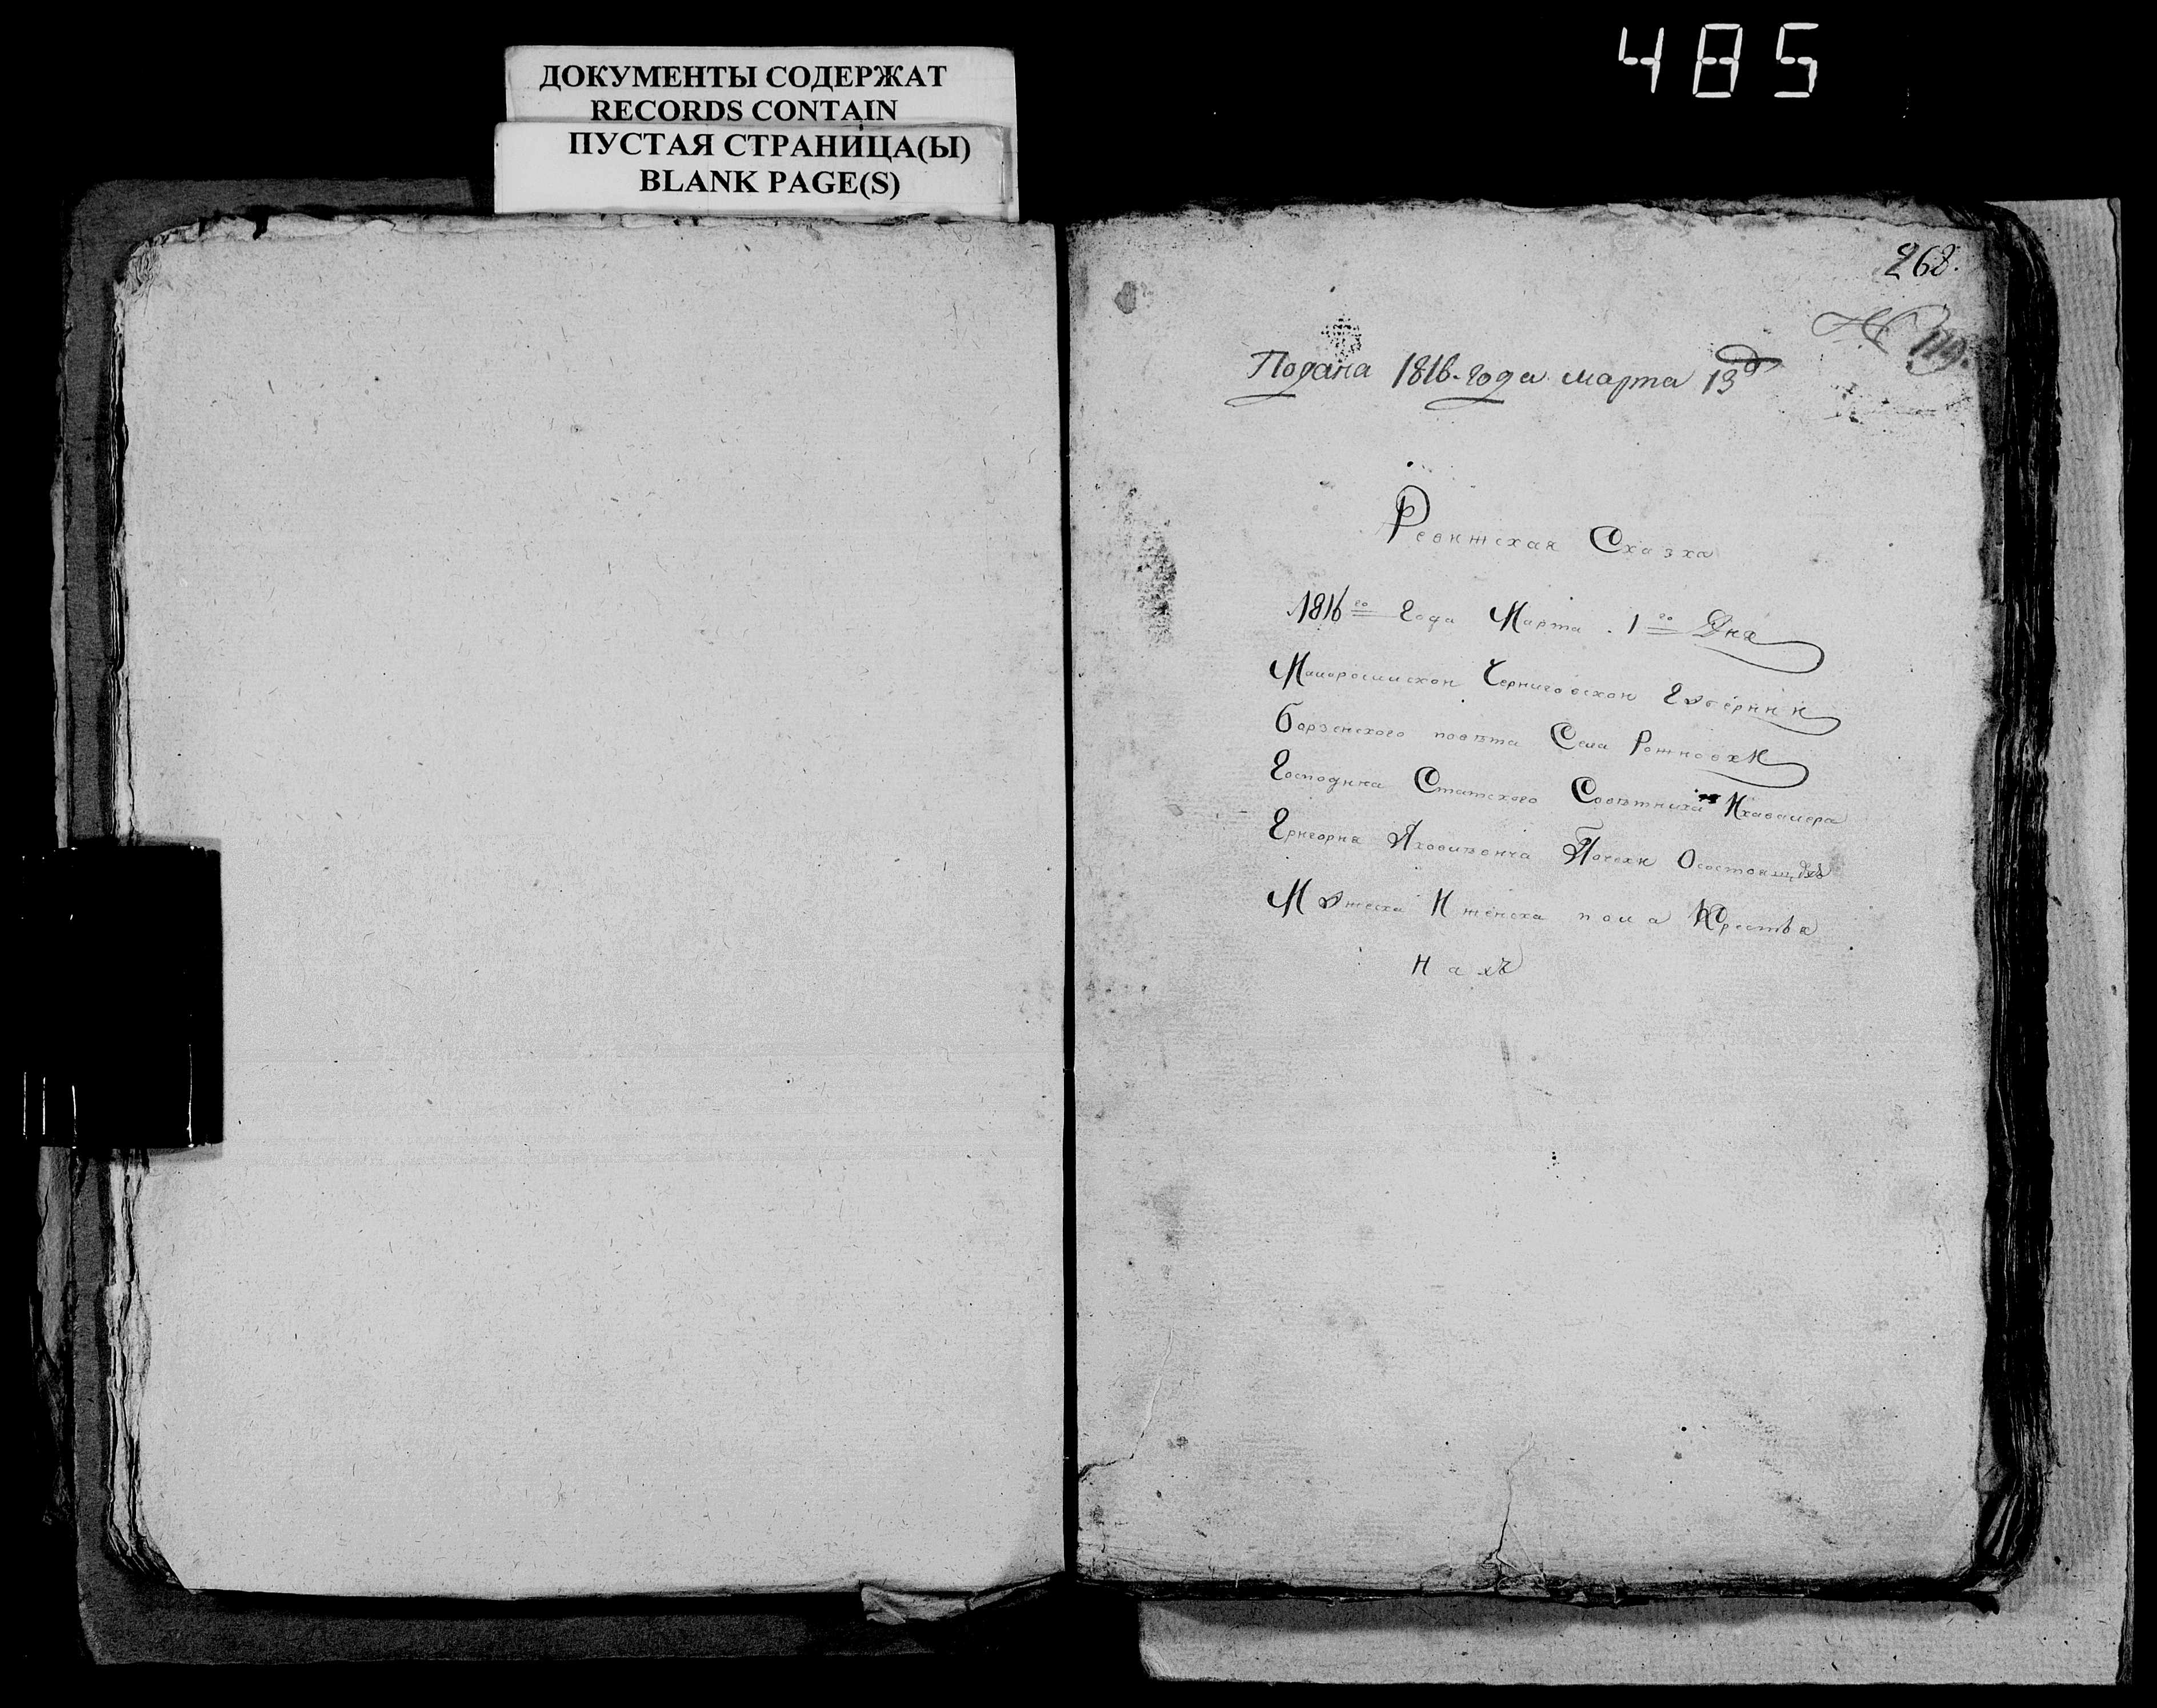 485
ДОКУМЕНТЫ СОДЕРЖАТ
RECORDS CONTAIN
ПУСТАЯ СТРАНИЦА(Ы)
BLANK PAGE(S)
268.
Подана 1816. года марта 13д
Ревижская Сказка
1816го Года Марта. 1го Дня
Малоросииской Черниговской Губернии
Борзенского повѣта Села Рожновки
Господина Статского Совѣтника И кавалера
Григория Яковлевича Почеки Осостоящихъ
Мужеска И женска пола Крестья
нахъ